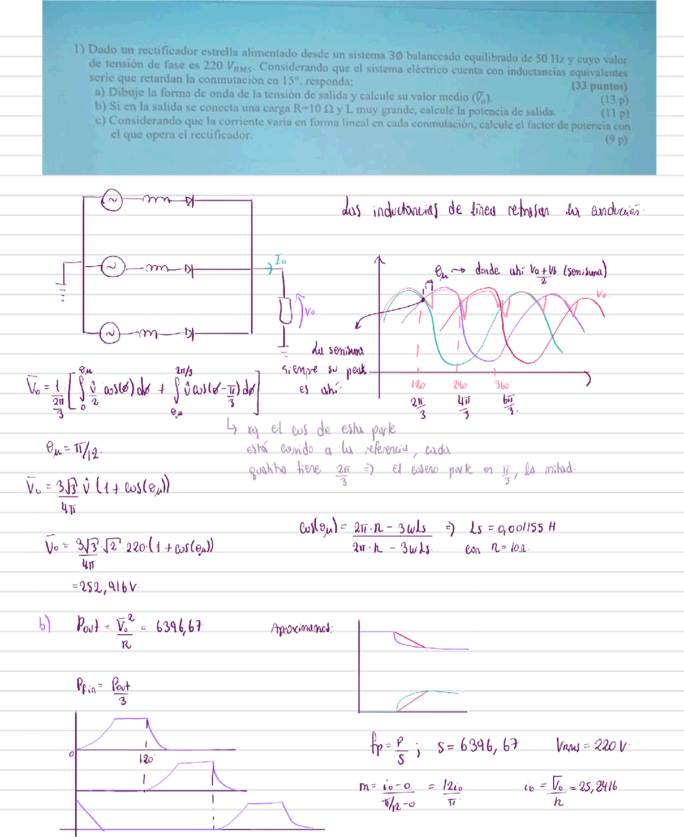 1) Dado un rectificador estrella alimentado desde un sistema 3Ø balanceado equilibrado de 50 Hz y cuyo valor
de tensión de fase es 220 V_RMS. Considerando que el sistema eléctrico cuenta con inductancias equivalentes
serie que retardan la conmutación en 15°, responda: (33 puntos)
a) Dibuje la forma de onda de la tensión de salida y calcule su valor medio (V̄o). (13 p)
b) Si en la salida se conecta una carga R=10 Ω y L muy grande, calcule la potencia de salida. (11 p)
c) Considerando que la corriente varía en forma lineal en cada conmutación, calcule el factor de potencia con
el que opera el rectificador. (9 p)
Las inductancias de línea retrasan la conducción.
θμ → donde ahí Va+Vb/2 (semisuma)
Vo
Io
Vo
La semisuma
siempre su peak
es ahí.
120 240 360
2π/3 4π/3 6π/3
V̄o = 1/(2π/3) [∫₀^θμ v̂/2 cos(ø)dø + ∫θμ^2π/3 v̂ cos(ø-π/3)dø]
↳ xq el cos de esta parte
está corrido a la referencia, cada
2π/3 ⇒ el coseno parte en π/3, la mitad.
θμ = π/12.
V̄o = 3√3/4π v̂ (1 + cos(θμ))
cos(θμ) = 2π·R - 3wLs / 2π·R - 3wLs ⇒ Ls = 0,001155 H
con R = 10Ω
V̄o = 3√3/4π · √2 · 220 · (1 + cos(θμ))
= 252,916 V
b) Pout = V̄o²/R = 6396,67
Aproximamos:
Pfin = Pout/3
0
120
fp = P/S ; S = 6396,67 VRMS = 220 V.
m = io-0 / π/12-0 = 12io/π io = V̄o/R = 25,2916